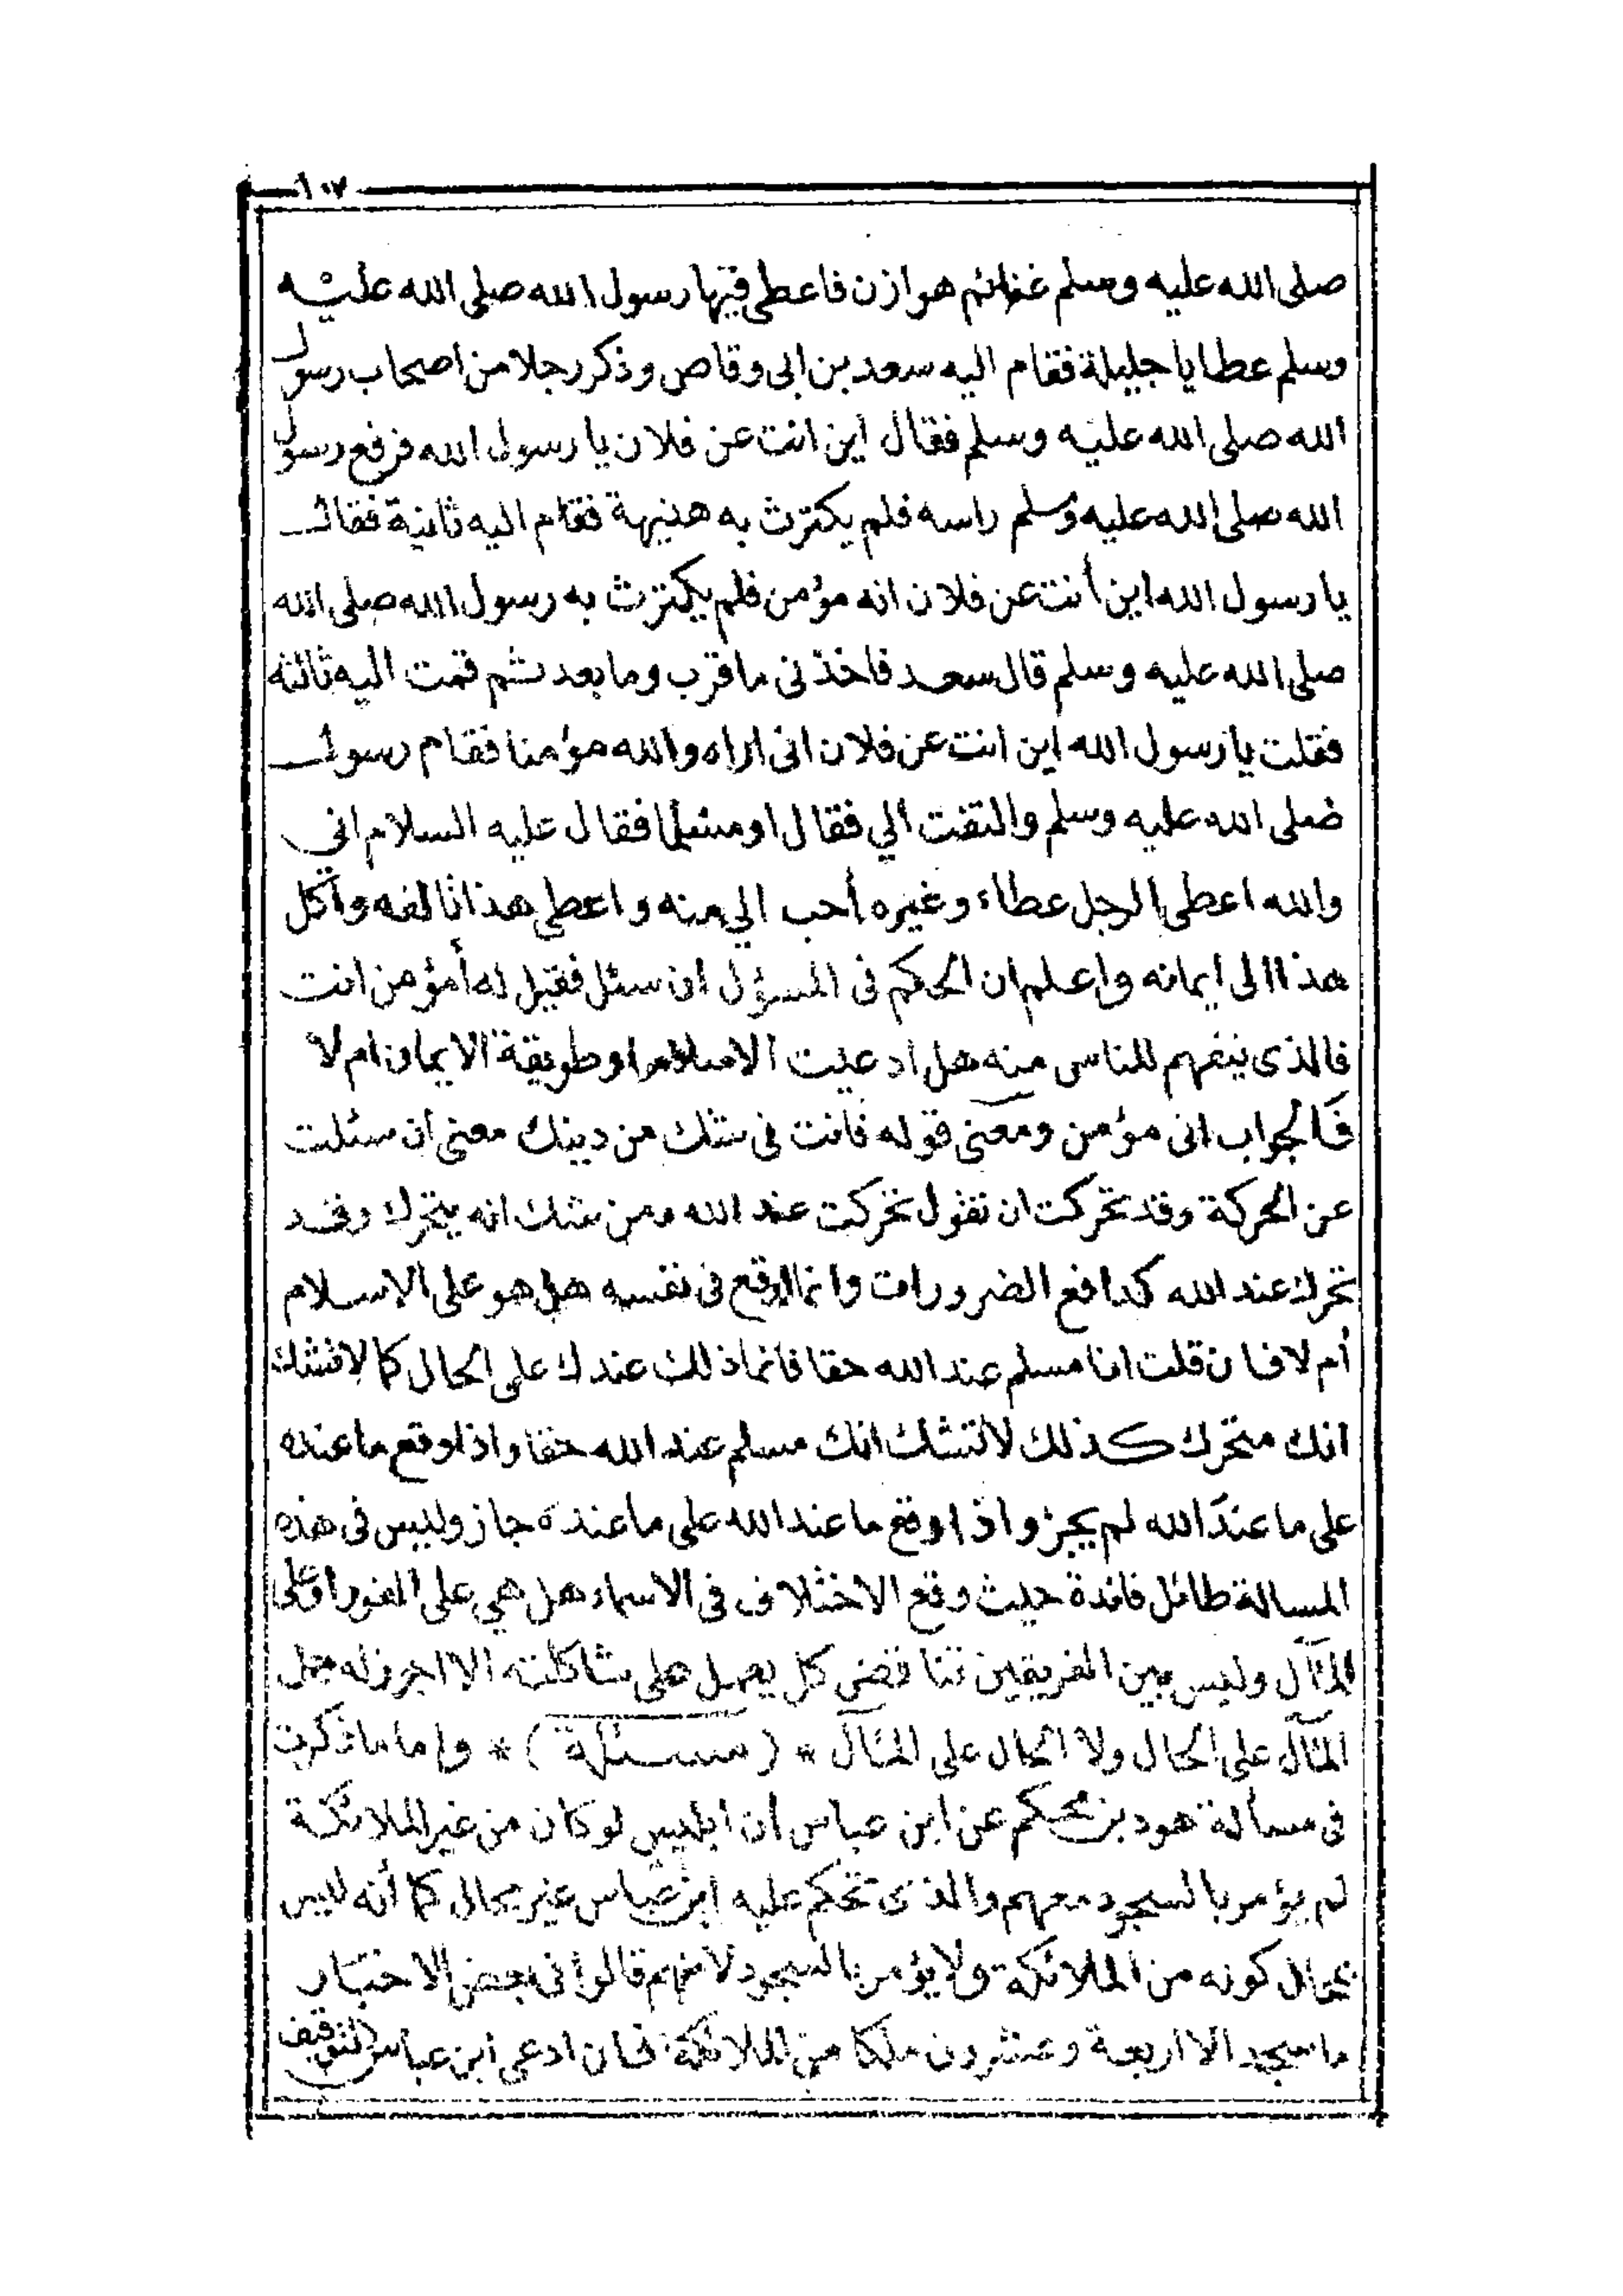 ١٠٧
صلى الله عليه وسلم غنائم هوازن فاعطى فيها رسول الله صلى الله عليه
وسلم عطايا جليلة فقام اليه سعد بن ابى وقاص وذكر رجلا من اصحاب رسول
الله صلى الله عليه وسلم فقال اين انت عن فلان يا رسول الله فرفع رسول
الله صلى الله عليه وسلم راسه فلم يكترث به هنيهة فقام اليه ثانية فقال
يا رسول الله اين أنت عن فلان انه مؤمن فلم يكترث به رسول الله صلى الله
صلى الله عليه وسلم قال سعد فاخذنى ما قرب وما بعد ثم قمت اليه ثالثة
فقلت يا رسول الله اين انت عن فلان انى اراه والله مؤمنا فقام رسول
صلى الله عليه وسلم والتفت الي فقال او مسلما فقال عليه السلام اني
والله اعطى الرجل عطاء وغيره أحب الي منه واعطى هذا نالفه وآكل
هذا الى ايمانه واعلم ان الحكم فى المسؤل ان سئل فقيل له أمؤمن انت
فالذى ينفهم للناس منه هل ادعيت الاسلام او طريقة الايمان ام لا
فالجواب انى مؤمن ومعنى قوله فانت فى شك من دينك معنى ان سئلت
عن الحركة وقد تحركت ان تقول تحركت عند الله ومن شك انه يتحرك وقد
تحرك عند الله كدافع الضرورات وانما وقع فى نفسه هل هو على الإسلام
أم لا فان قلت انا مسلم عند الله حقا فانما ذلك عندك على الحال كما لا تشك
انك متحرك كذلك لا تشك انك مسلم عند الله حقا واذا وقع ما عنده
على ما عند الله لم يجز واذا وقع ما عند الله على ما عنده جاز وليس فى هذه
المسالة طائل فائدة حيث وقع الاختلاف فى الاسماء هل هي على الفور او على
المآل وليس بين الفريقين تناقض كل يعمل على شاكلته الا اجرزله حمل
المآل على الحال ولا الحال على المآل * (مسئلة) * واما ما ذكرت
فى مسألة هود بن محكم عن ابن عباس أن ابليس لو كان من غير الملائكة
لم يؤمر بالسجود معهم والذى تحكم عليه ابن عباس غير محال كما أنه ليس
بمحال كونه من الملائكة ولا يؤمر بالسجود لانهم قالوا فى بعض الاخبار
ما سجد الا اربعة وعشرون ملكا من الملائكة فان ادعى ابن عباس التوقيف